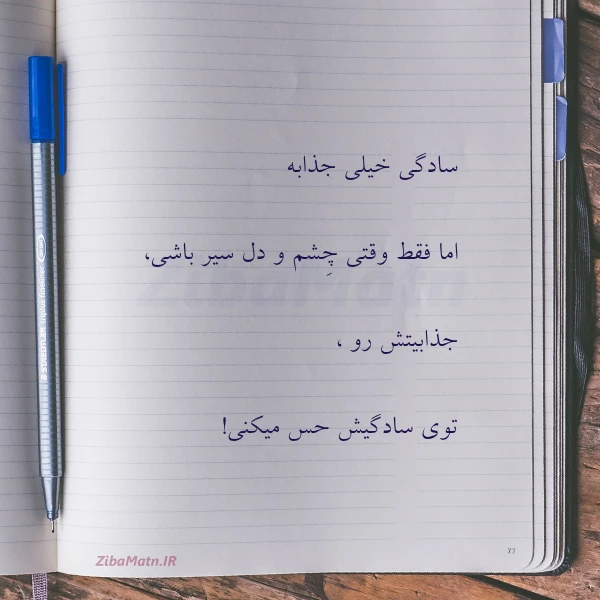 سادگی خیلی جذابه
اما فقط وقتی چِشم و دل سیر باشی،
جذابیتش رو ،
توی سادگیش حس میکنی!
77
ZibaMatn.IR